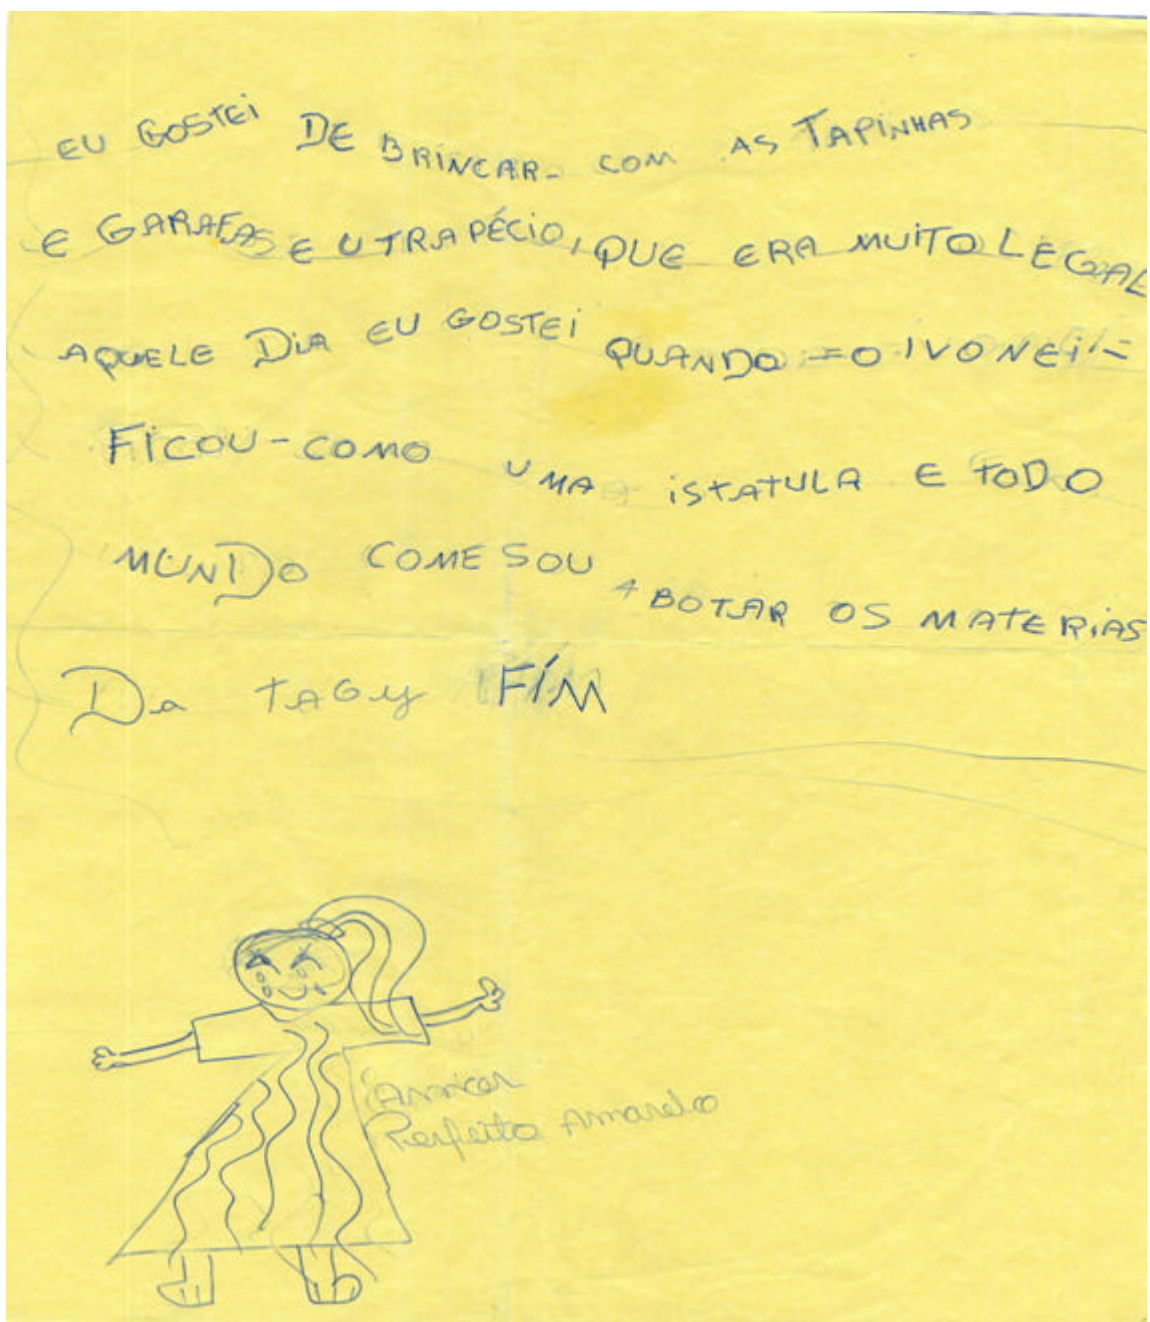 EU GOSTEI DE BRINCAR- COM AS TAPINHAS
E GARAFAS E U TRAPÉCIO, QUE ERA MUITO LEGAL
AQUELE DIA EU GOSTEI QUANDO =O IVONEI=
FICOU-COMO UMA ISTATULA E TODO
MUNDO COMESOU A BOTAR OS MATERIAS
Da TAGY FÍM
Perfeito Amarelo